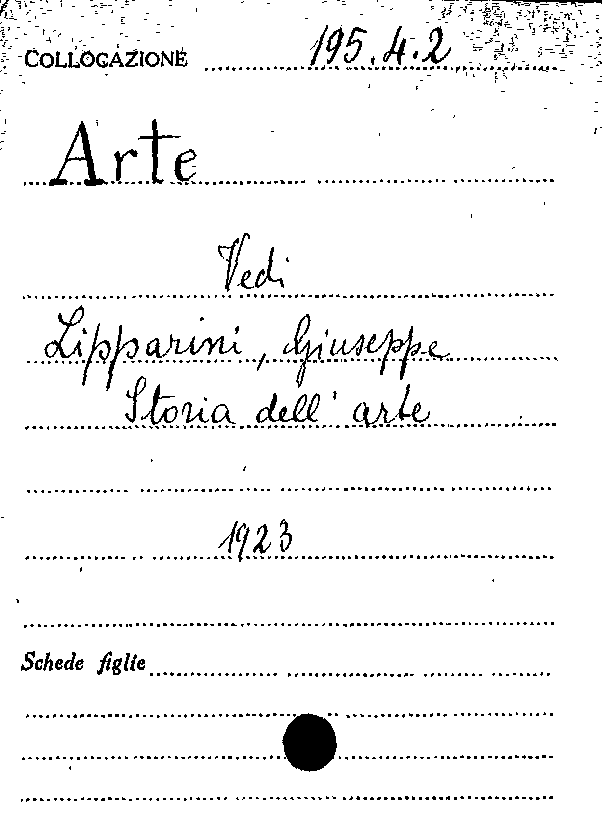 COLLOCAZIONE 195.4.2
Arte
Vedi
Lipparini, Giuseppe
Storia dell' arte
1923
Schede figlie